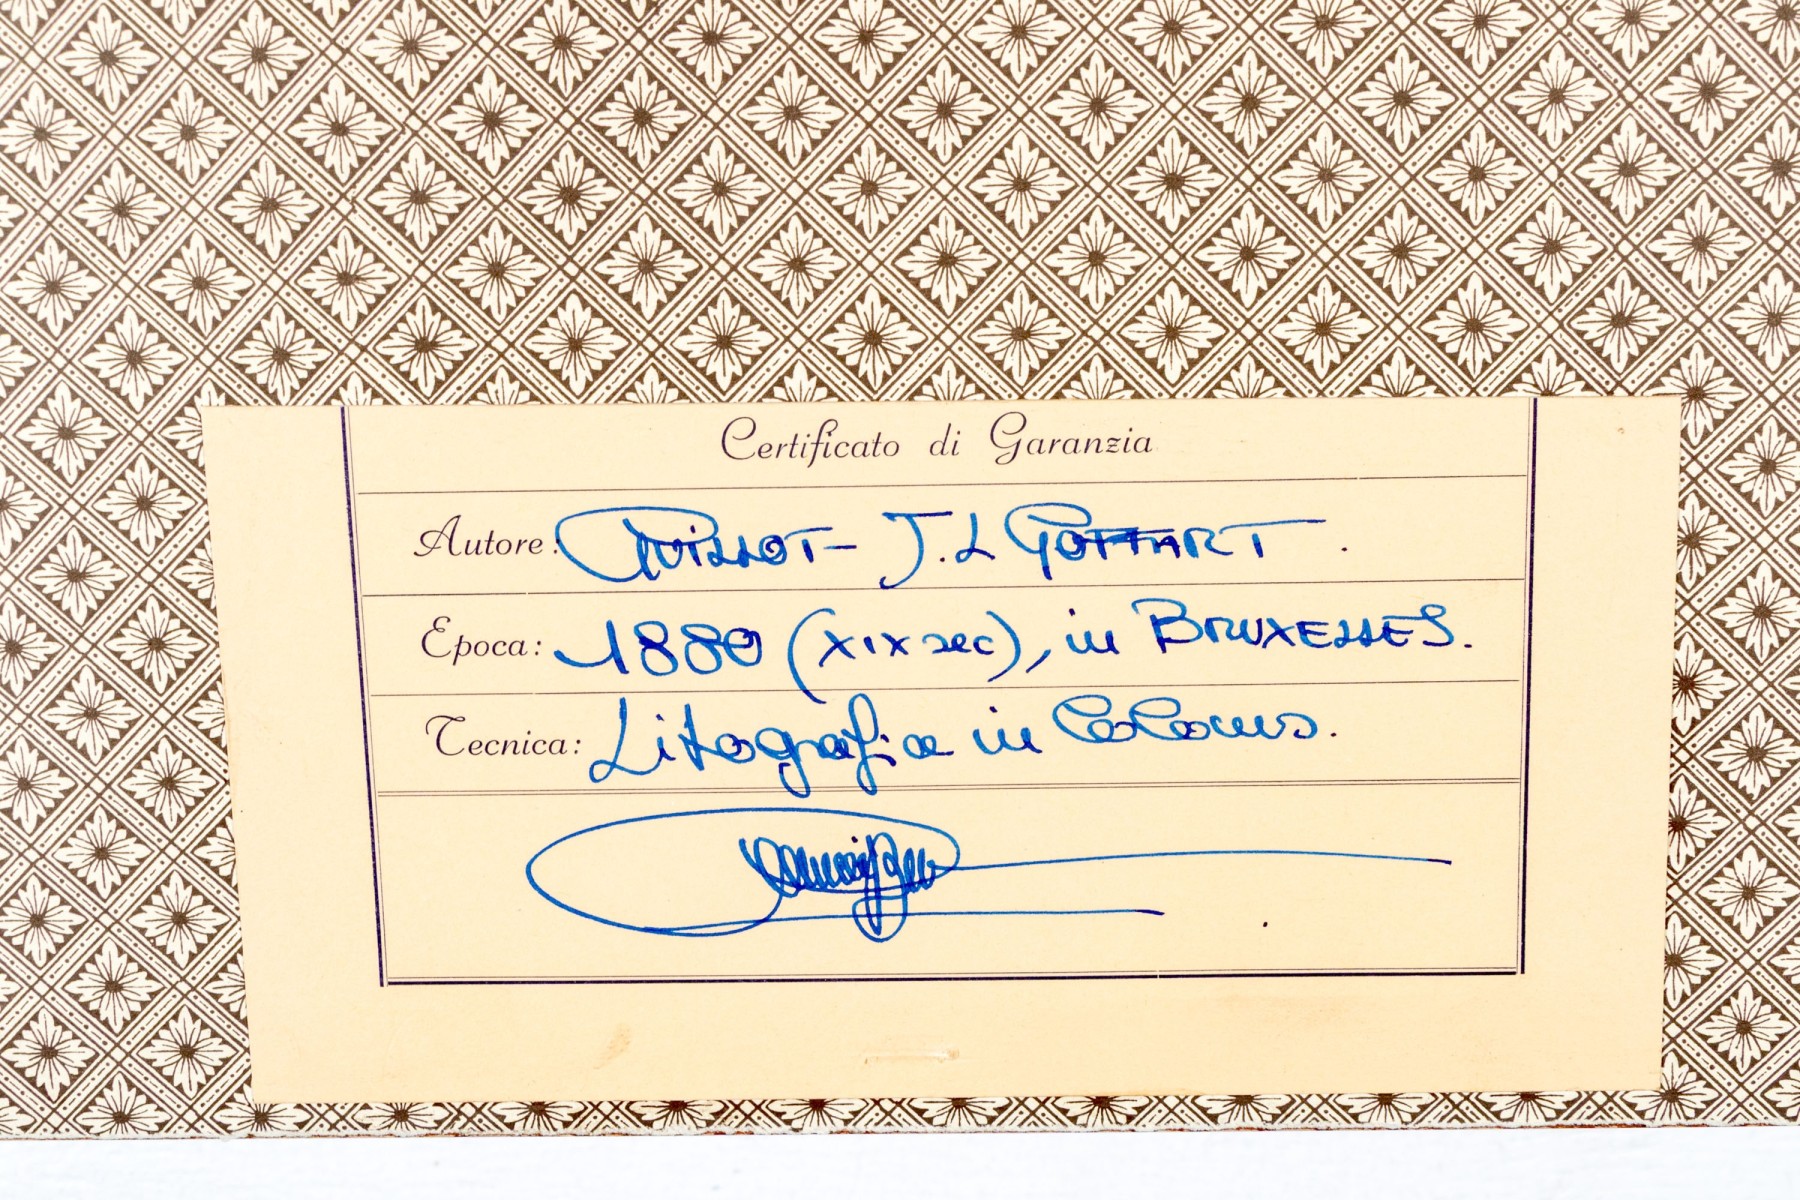 Certificato di Garanzia
Autore: J.L GOFFART.
Epoca: 1880 (XIX sec), in BRUXELLES.
Tecnica: Litografia in Colours.